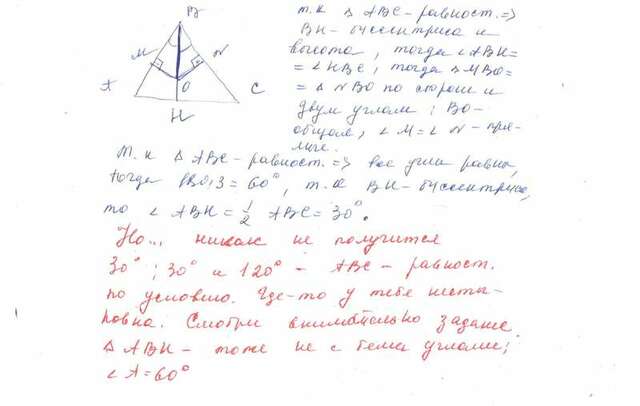 B
M
N
A
O
C
H
т.к △ ABC - равност. =>
BH - биссектриса и
высота, тогда ∠ABH =
= ∠HBC, тогда △ MBO =
= △ NBO по стороне и
двум углам; BO -
общая, ∠ M = ∠ N - пря-
мые.
т.к △ ABC - равност. => все углы равны,
тогда 180:3 = 60°, т.к BH - биссектриса,
то ∠ ABH = 1/2 ABC = 30°.
Но... никак не получится
30°; 30° и 120° - ABC - равност.
по условию. Где-то у тебя несты-
ковка. Смотри внимательно задание.
△ ABH - тоже не с теми углами;
∠ A = 60°